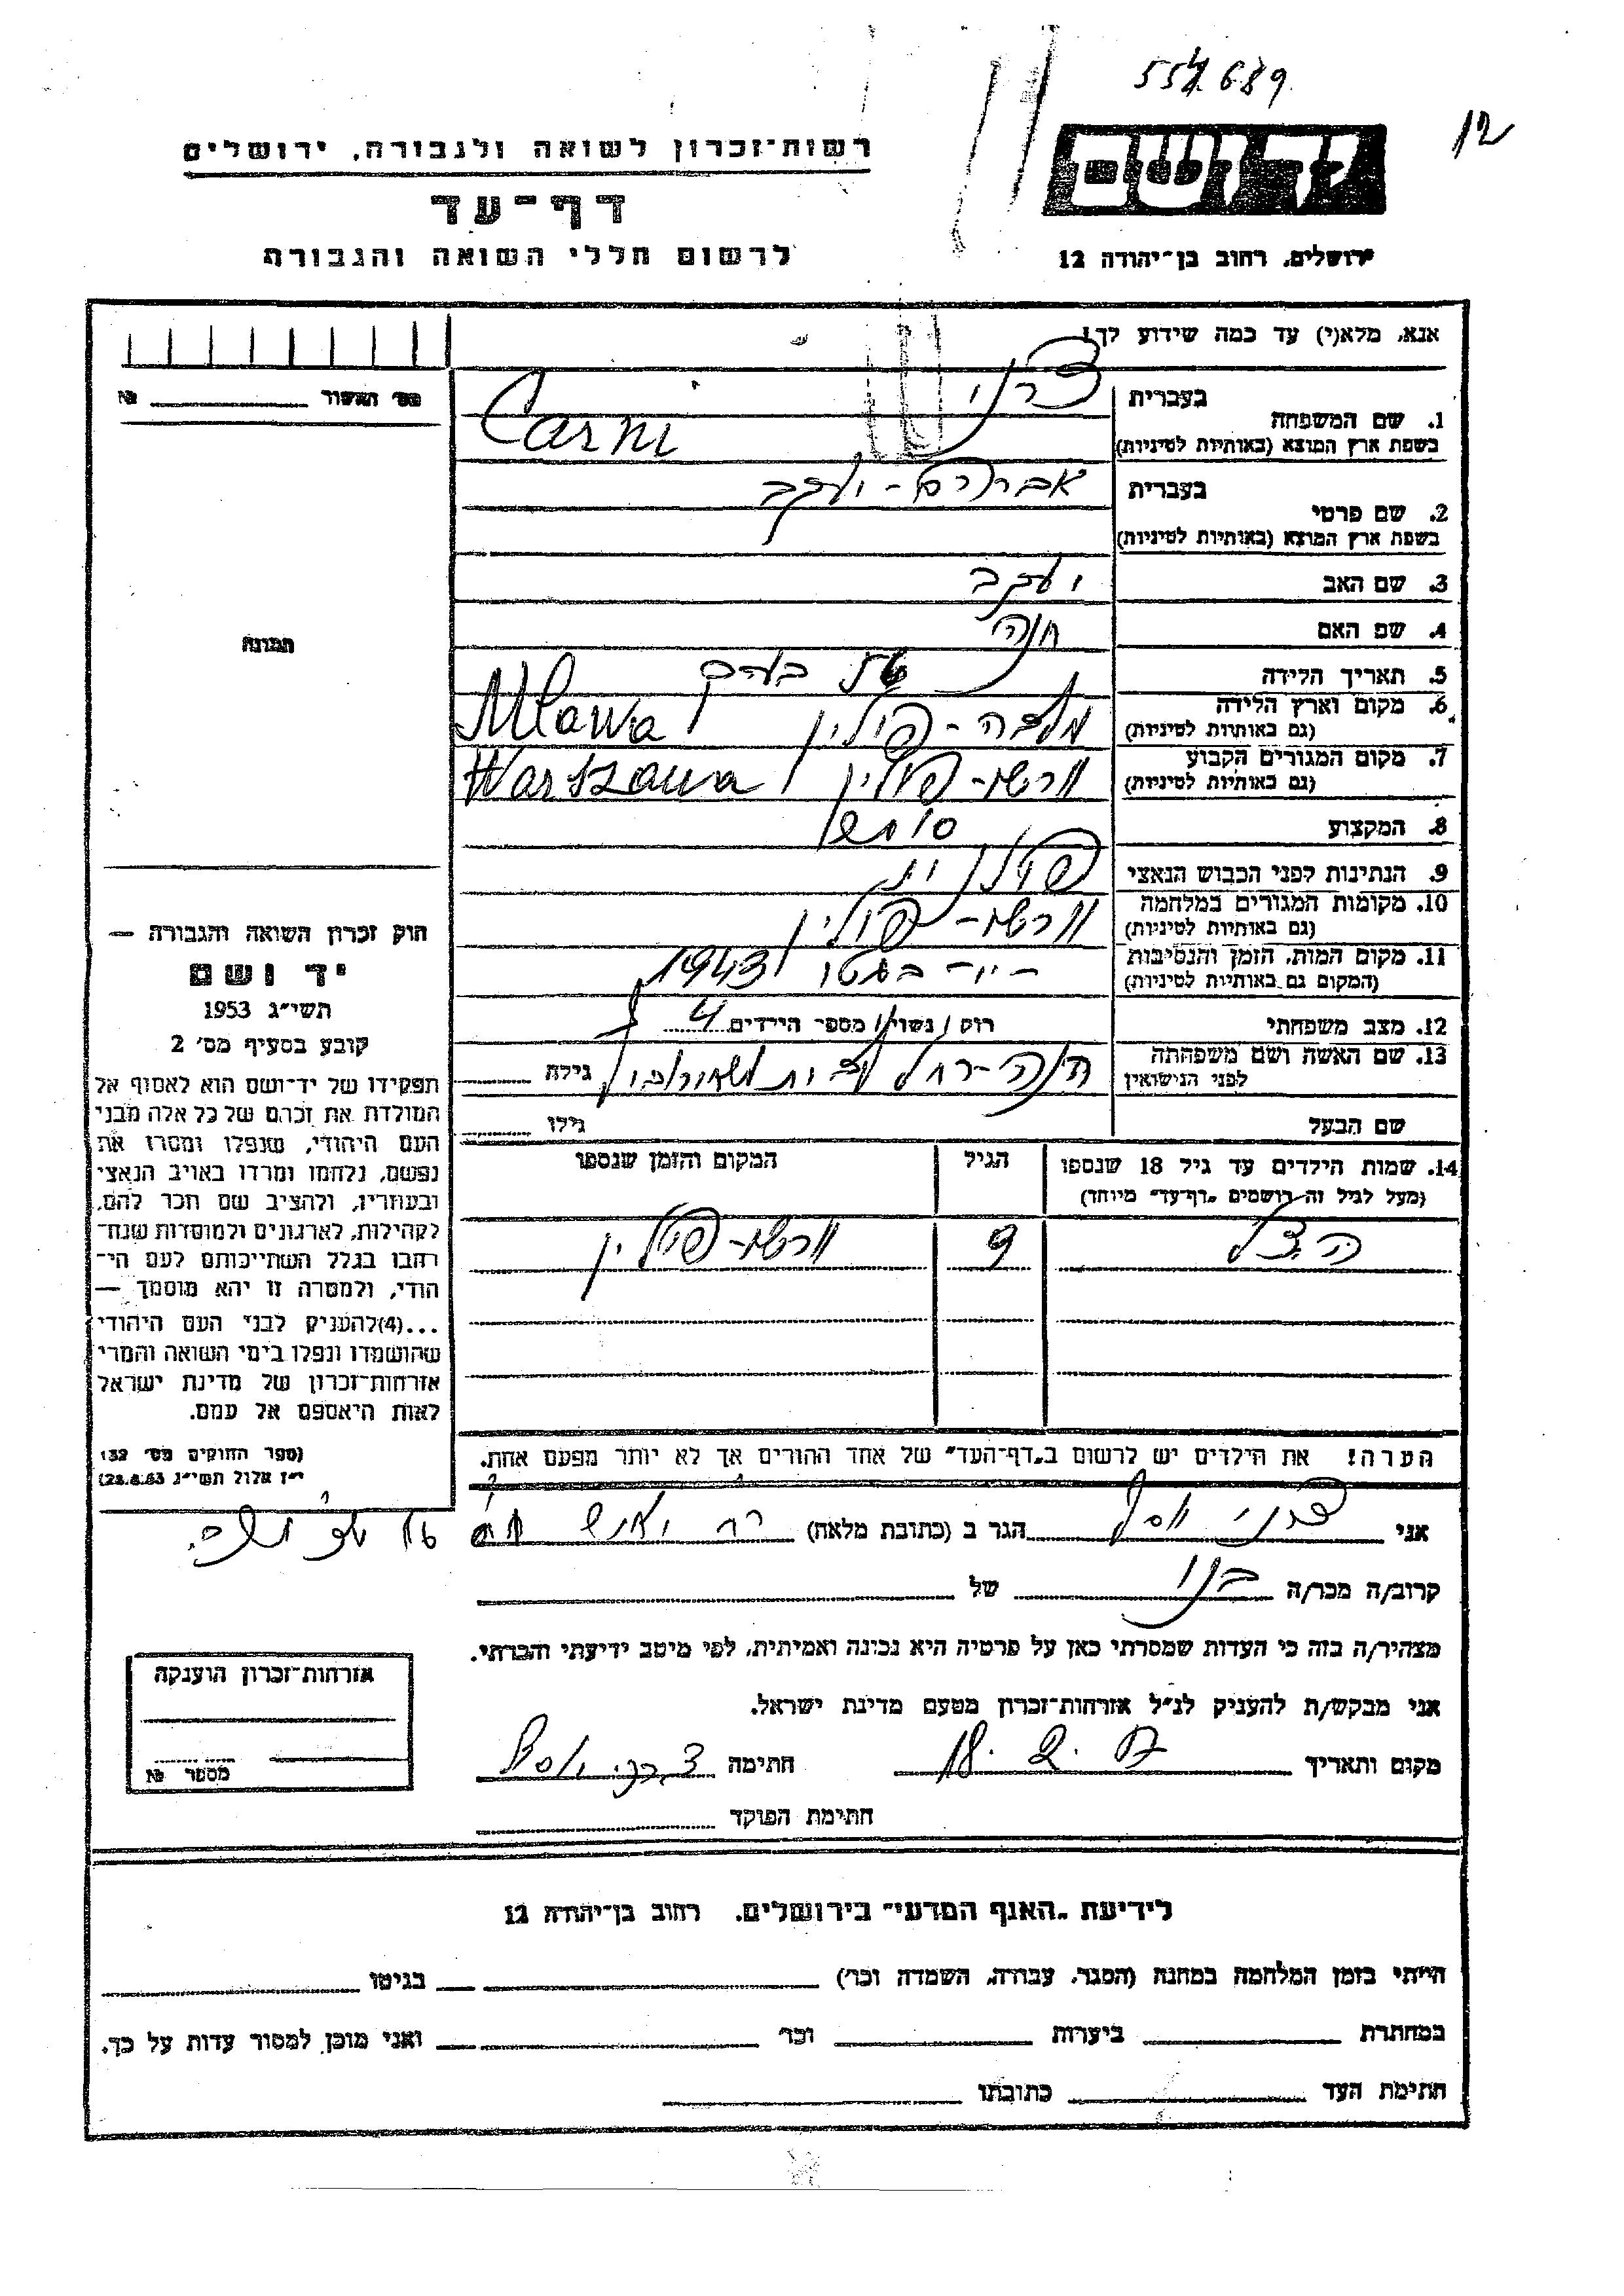 554689
12
יד ושם
ירושלים, רחוב בן־יהודה 12
רשות־זכרון לשואה ולגבורה, ירושלים
דף־עד
לרשום חללי השואה והגבורה
אנא, מלא(י) עד כמה שידוע לך!
מס' האשור № 
1. שם המשפחה
בעברית צרני
בשפת ארץ המוצא (באותיות לטיניות) Carni
2. שם פרטי
בעברית אברהם - יעקב
בשפת ארץ המוצא (באותיות לטיניות)
3. שם האב יעקב
4. שם האם חנה
5. תאריך הלידה
6. מקום וארץ הלידה מלבה - פולין Mlawa
(גם באותיות לטיניות)
7. מקום המגורים הקבוע ורשה - פולין Warszawa
(גם באותיות לטיניות)
8. המקצוע סוחר
9. הנתינות לפני הכבוש הנאצי פולנית
10. מקומות המגורים במלחמה ורשה - פולין
(גם באותיות לטיניות)
11. מקום המות, הזמן והנסיבות - " - בגטו 1943
(המקום גם באותיות לטיניות)
12. מצב משפחתי רוק / נשוי / מספר הילדים 4
13. שם האשה ושם משפחתה חנה - רחל לבית גילה
לפני הנישואין
שם הבעל גילו
14. שמות הילדים עד גיל 18 שנספו הגיל המקום והזמן שנספו
(מעל לגיל זה רושמים „דף־עד" מיוחד)
9 ורשה - פולין
הערה! את הילדים יש לרשום ב„דף־העד" של אחד ההורים אך לא יותר מפעם אחת.
תמונה
חוק זכרון השואה והגבורה —
יד ושם
תשי״ג 1953
קובע בסעיף מס׳ 2
תפקידו של יד־ושם הוא לאסוף אל
המולדת את זכרם של כל אלה מבני
העם היהודי, שנפלו ומסרו את
נפשם, נלחמו ומרדו באויב הנאצי
ובעוזריו, ולהציב שם וזכר להם,
לקהילות, לארגונים ולמוסדות שנח־
רבו בגלל השתייכותם לעם הי־
הודי, ולמטרה זו יהא מוסמך —
...(4)להעניק לבני העם היהודי
שהושמדו ונפלו בימי השואה והמרי
אזרחות־זכרון של מדינת ישראל
לאות היאספם אל עמם.
(ספר החוקים מס׳ 132
י״ז אלול תשי״ג 28.8.53)
אני צרני יוסף הגר ב (כתובת מלאה) רח
קרוב/ה מכר/ה בנו של
מצהיר/ה בזה כי העדות שמסרתי כאן על פרטיה היא נכונה ואמיתית, לפי מיטב ידיעתי והכרתי.
אני מבקש/ת להעניק לנ״ל אזרחות־זכרון מטעם מדינת ישראל.
מקום ותאריך חתימה צרני יוסף
חתימת הפוקד
אזרחות־זכרון הוענקה
מספר №
לידיעת „האגף המדעי" בירושלים. רחוב בן־יהודה 12
הייתי בזמן המלחמה במחנה (הסגר, עבודה, השמדה וכו׳) בגיטו
במחתרת ביערות וכו׳ ואני מוכן למסור עדות על כך.
חתימת העד כתובתו